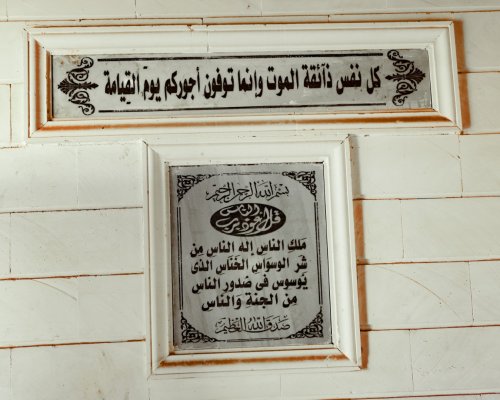 كل نفس ذآئقة الموت وإنما توفون أجوركم يوم القيامة
بسم الله الرحمن الرحيم
قل أعوذ برب الناس
ملك الناس إله الناس من
شر الوسواس الخناس الذى
يوسوس فى صدور الناس
من الجنة والناس
صدق الله العظيم